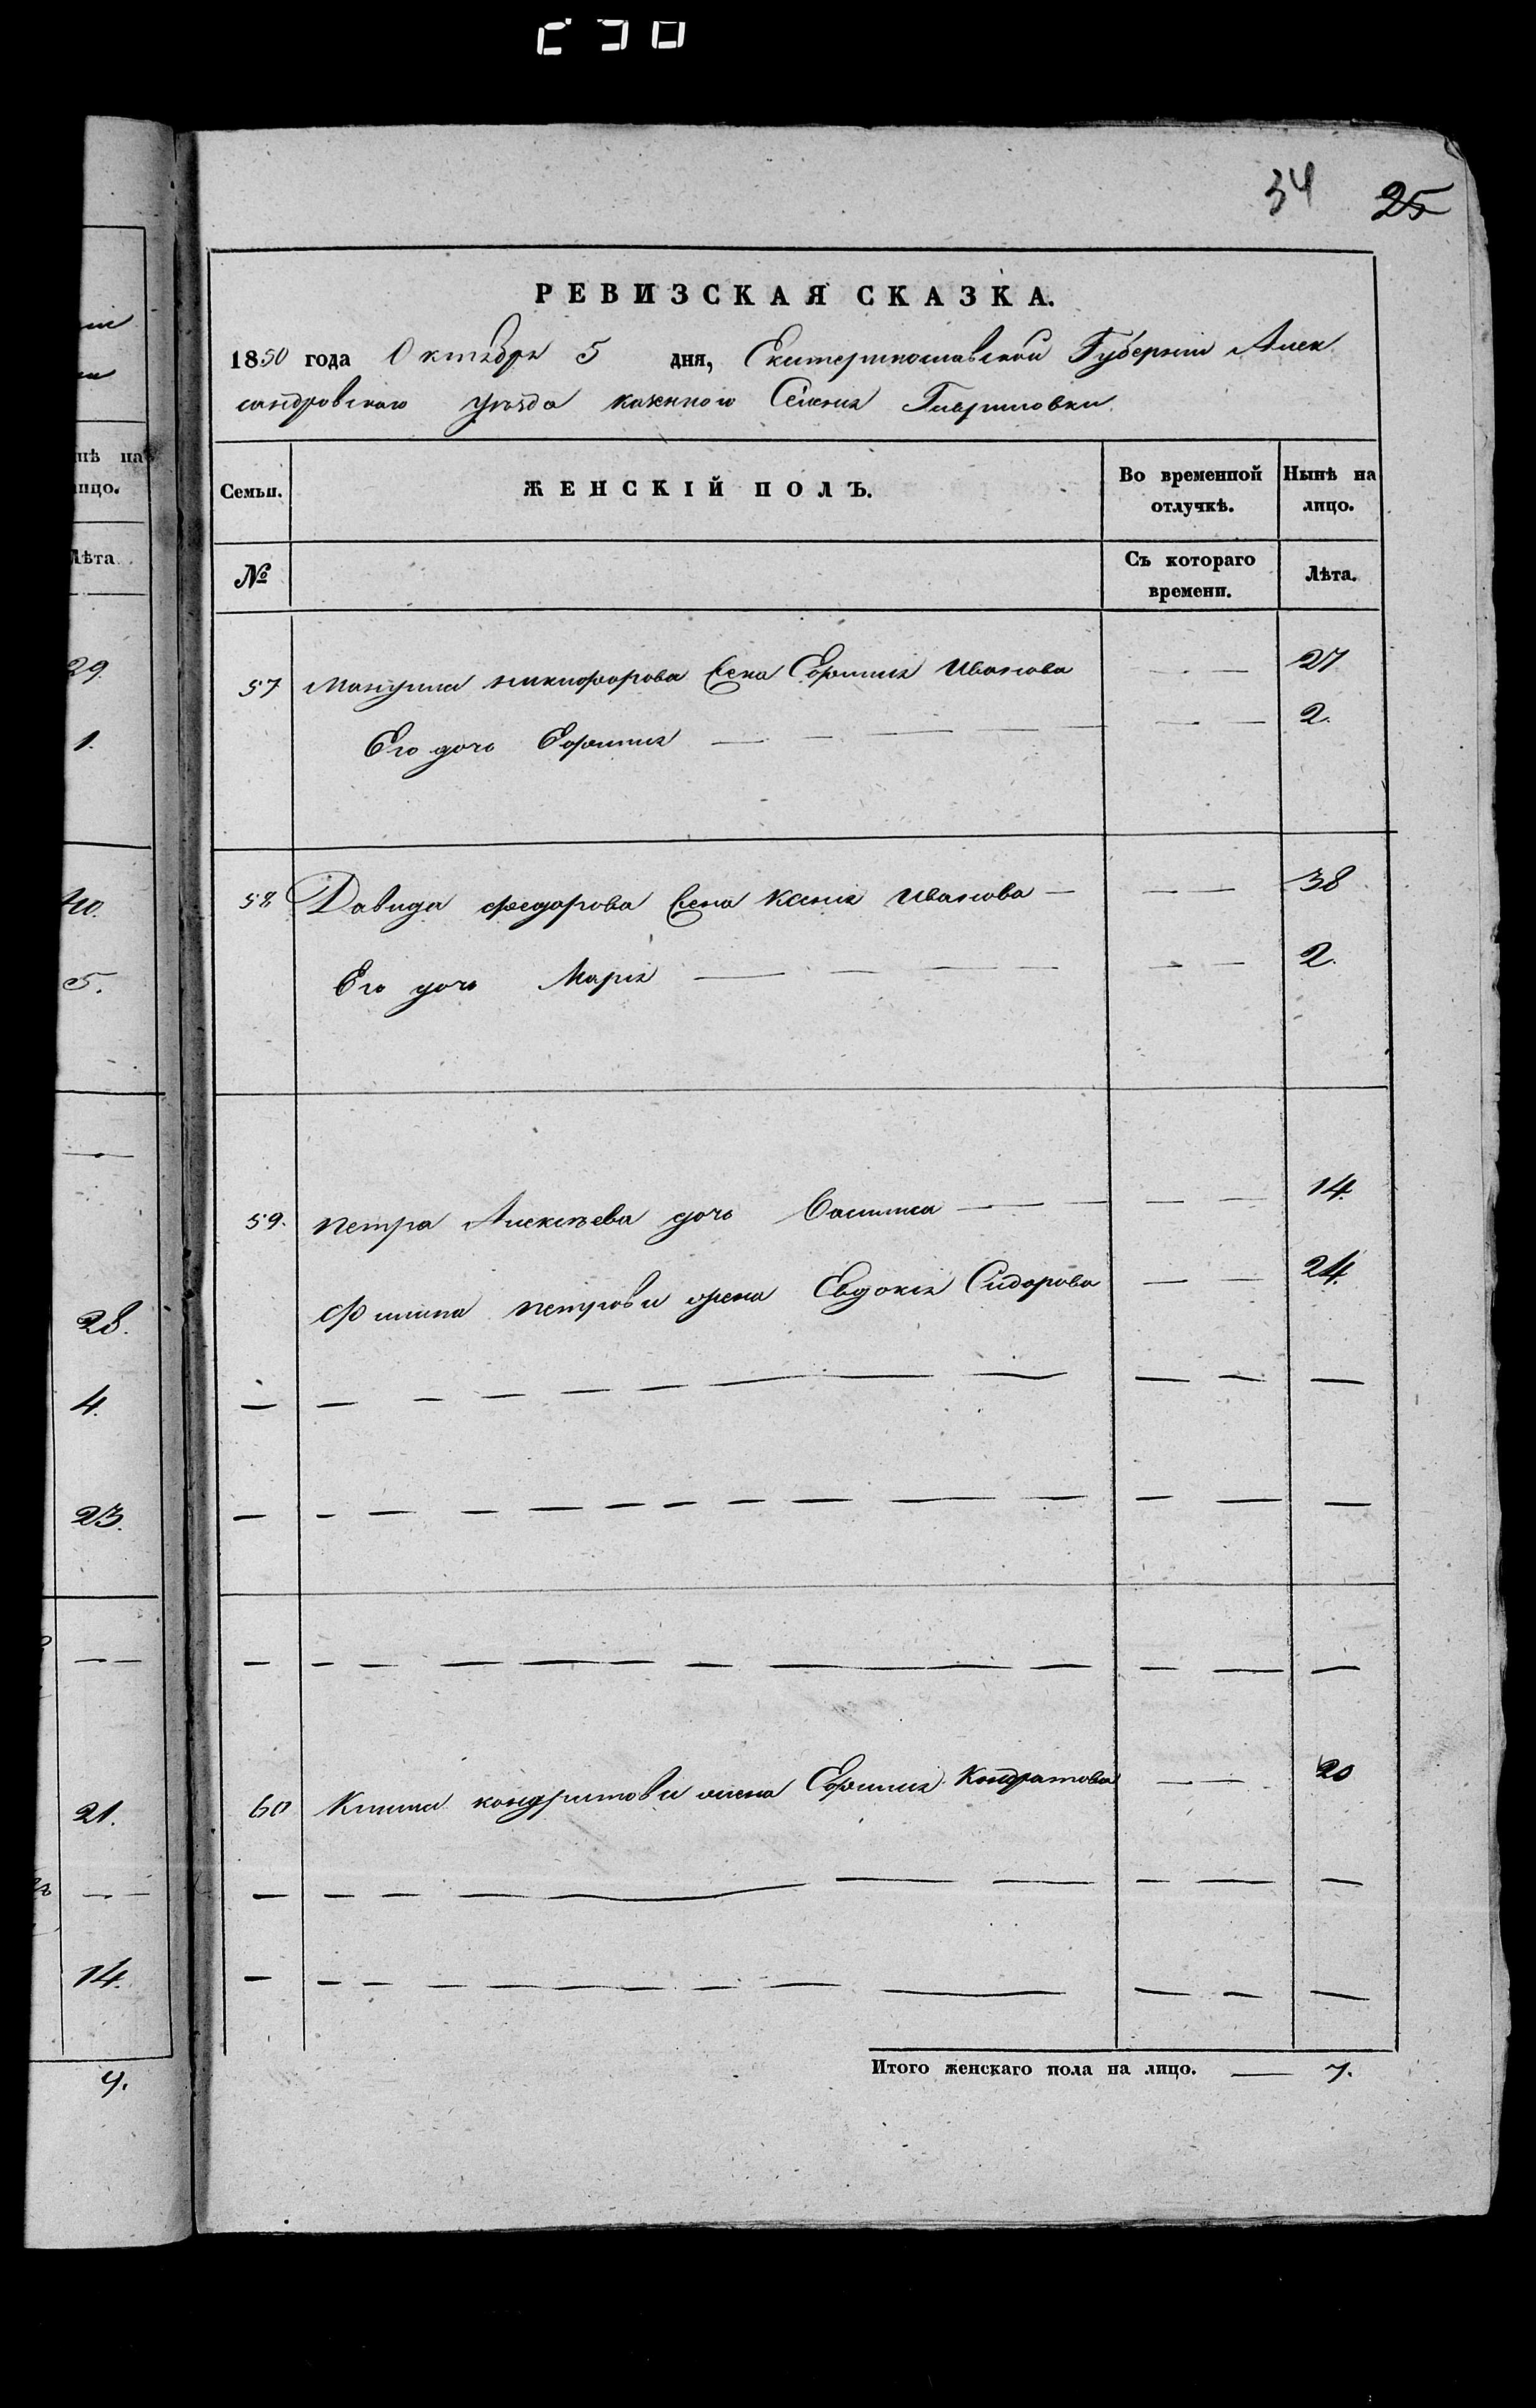 34 25
РЕВИЗСКАЯ СКАЗКА.
1850 года Октября 5 дня, Екатеринославской Губернии Алек
сандровского уезда казенного Селения Гавриловки.
Семьи. ЖЕНСКІЙ ПОЛЪ. Во временной отлучкѣ. Нынѣ на лицо.
№ Съ котораго времени. Лѣта.
57 Мануила никифорова Жена Евфимия Иванова 27
Его дочь Евфимия 2.
58 Давида федорова Жена Ксения Иванова 38
Его дочь Мария 2.
59. петра Алексеева дочь Василиса 14
Филипа петрова жена Евдокия Сидорова 24.
60 кондратова жена Евфимия Кондратова 20
Итого женскаго пола на лицо. 7.
нѣ на
лицо.
Лѣта
29.
1.
40.
5.
28.
4.
23.
21.
14.